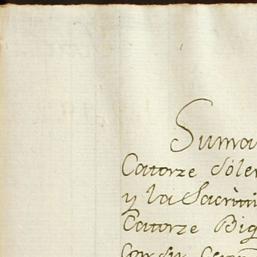 Suma
Catorze Sóle
y la Sacri
Catorze Big